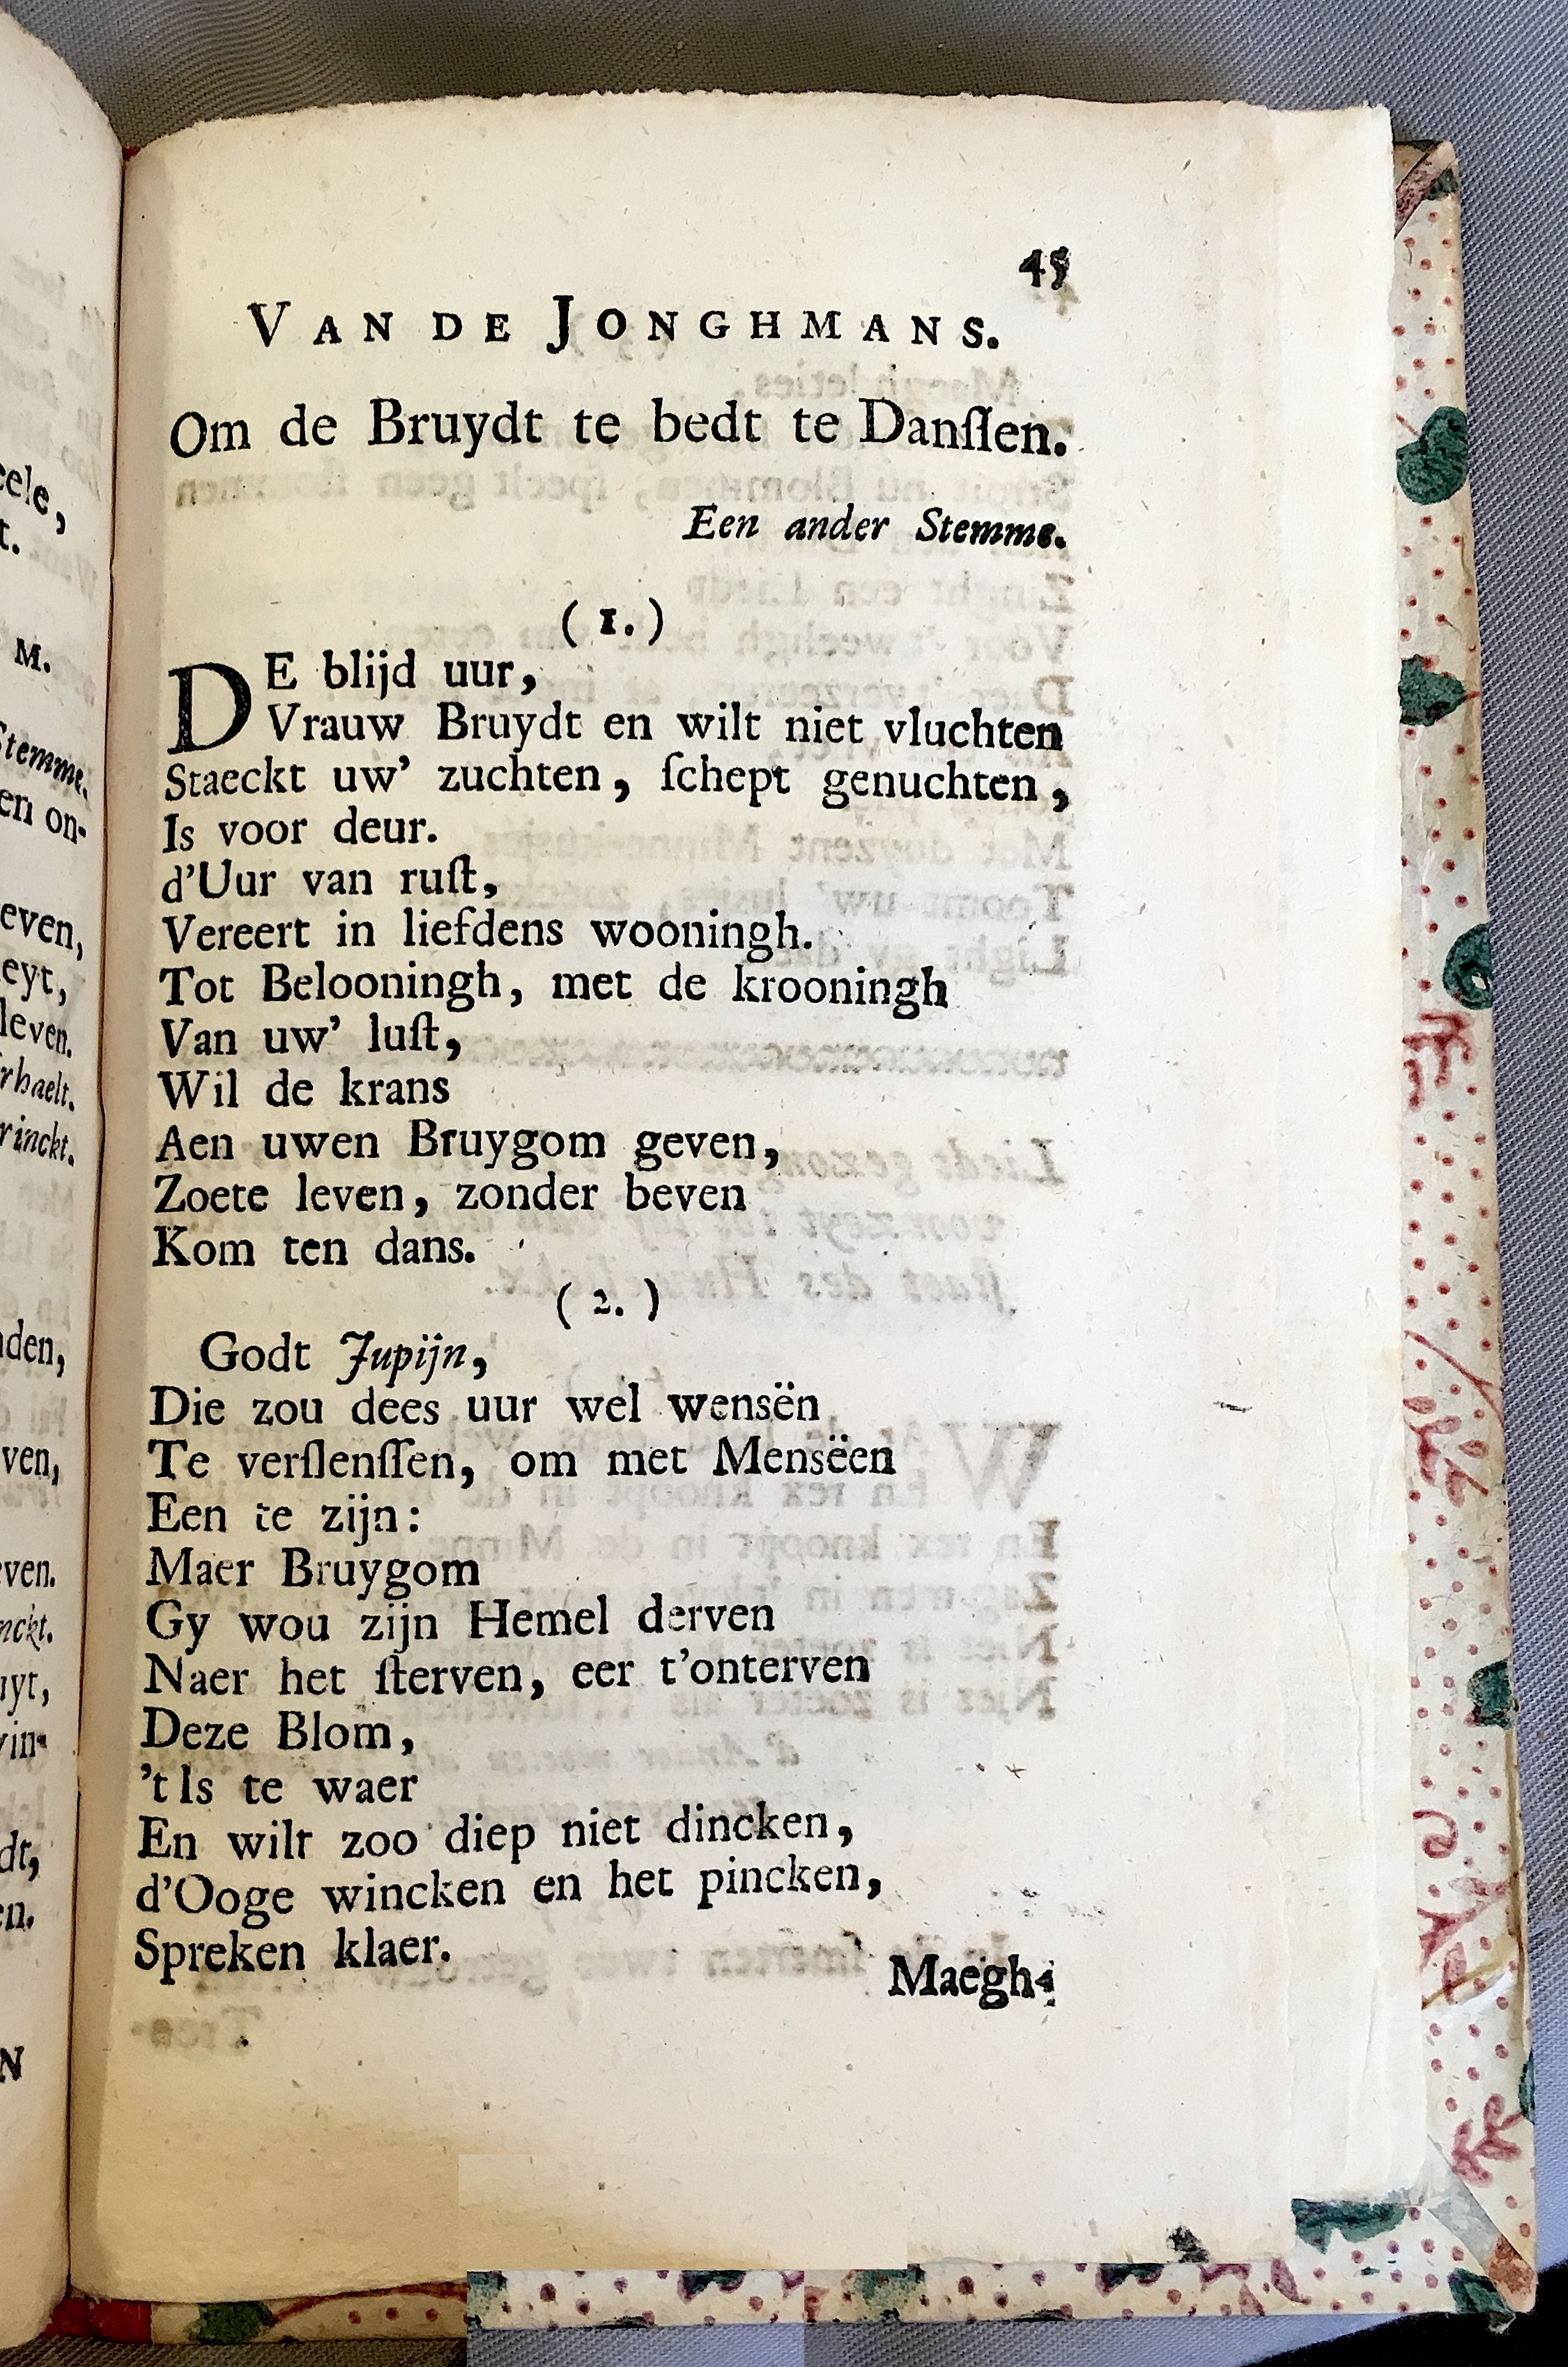 45
VAN DE JONGHMANS.
Om de Bruydt te bedt te Danſſen.
Een ander Stemme.
(1.)
DE blijd uur,
Vrauw Bruydt en wilt niet vluchten
Staeckt uw' zuchten, ſchept genuchten,
Is voor deur.
d'Uur van ruſt,
Vereert in liefdens wooningh.
Tot Belooningh, met de krooningh
Van uw' luſt,
Wil de krans
Aen uwen Bruygom geven,
Zoete leven, zonder beven
Kom ten dans.
(2.)
Godt Jupijn,
Die zou dees uur wel wensën
Te verſlenſſen, om met Mensëen
Een te zijn:
Maer Bruygom
Gy wou zijn Hemel derven
Naer het ſterven, eer t'onterven
Deze Blom,
't Is te waer
En wilt zoo diep niet dincken,
d'Ooge wincken en het pincken,
Spreken klaer.
Maegh-
eele,
t.
M.
Stemme.
en on-
even,
eyt,
leven.
rhaelt.
rinckt.
den,
ven,
ven.
nckt.
uyt,
vin-
dt,
en.
N